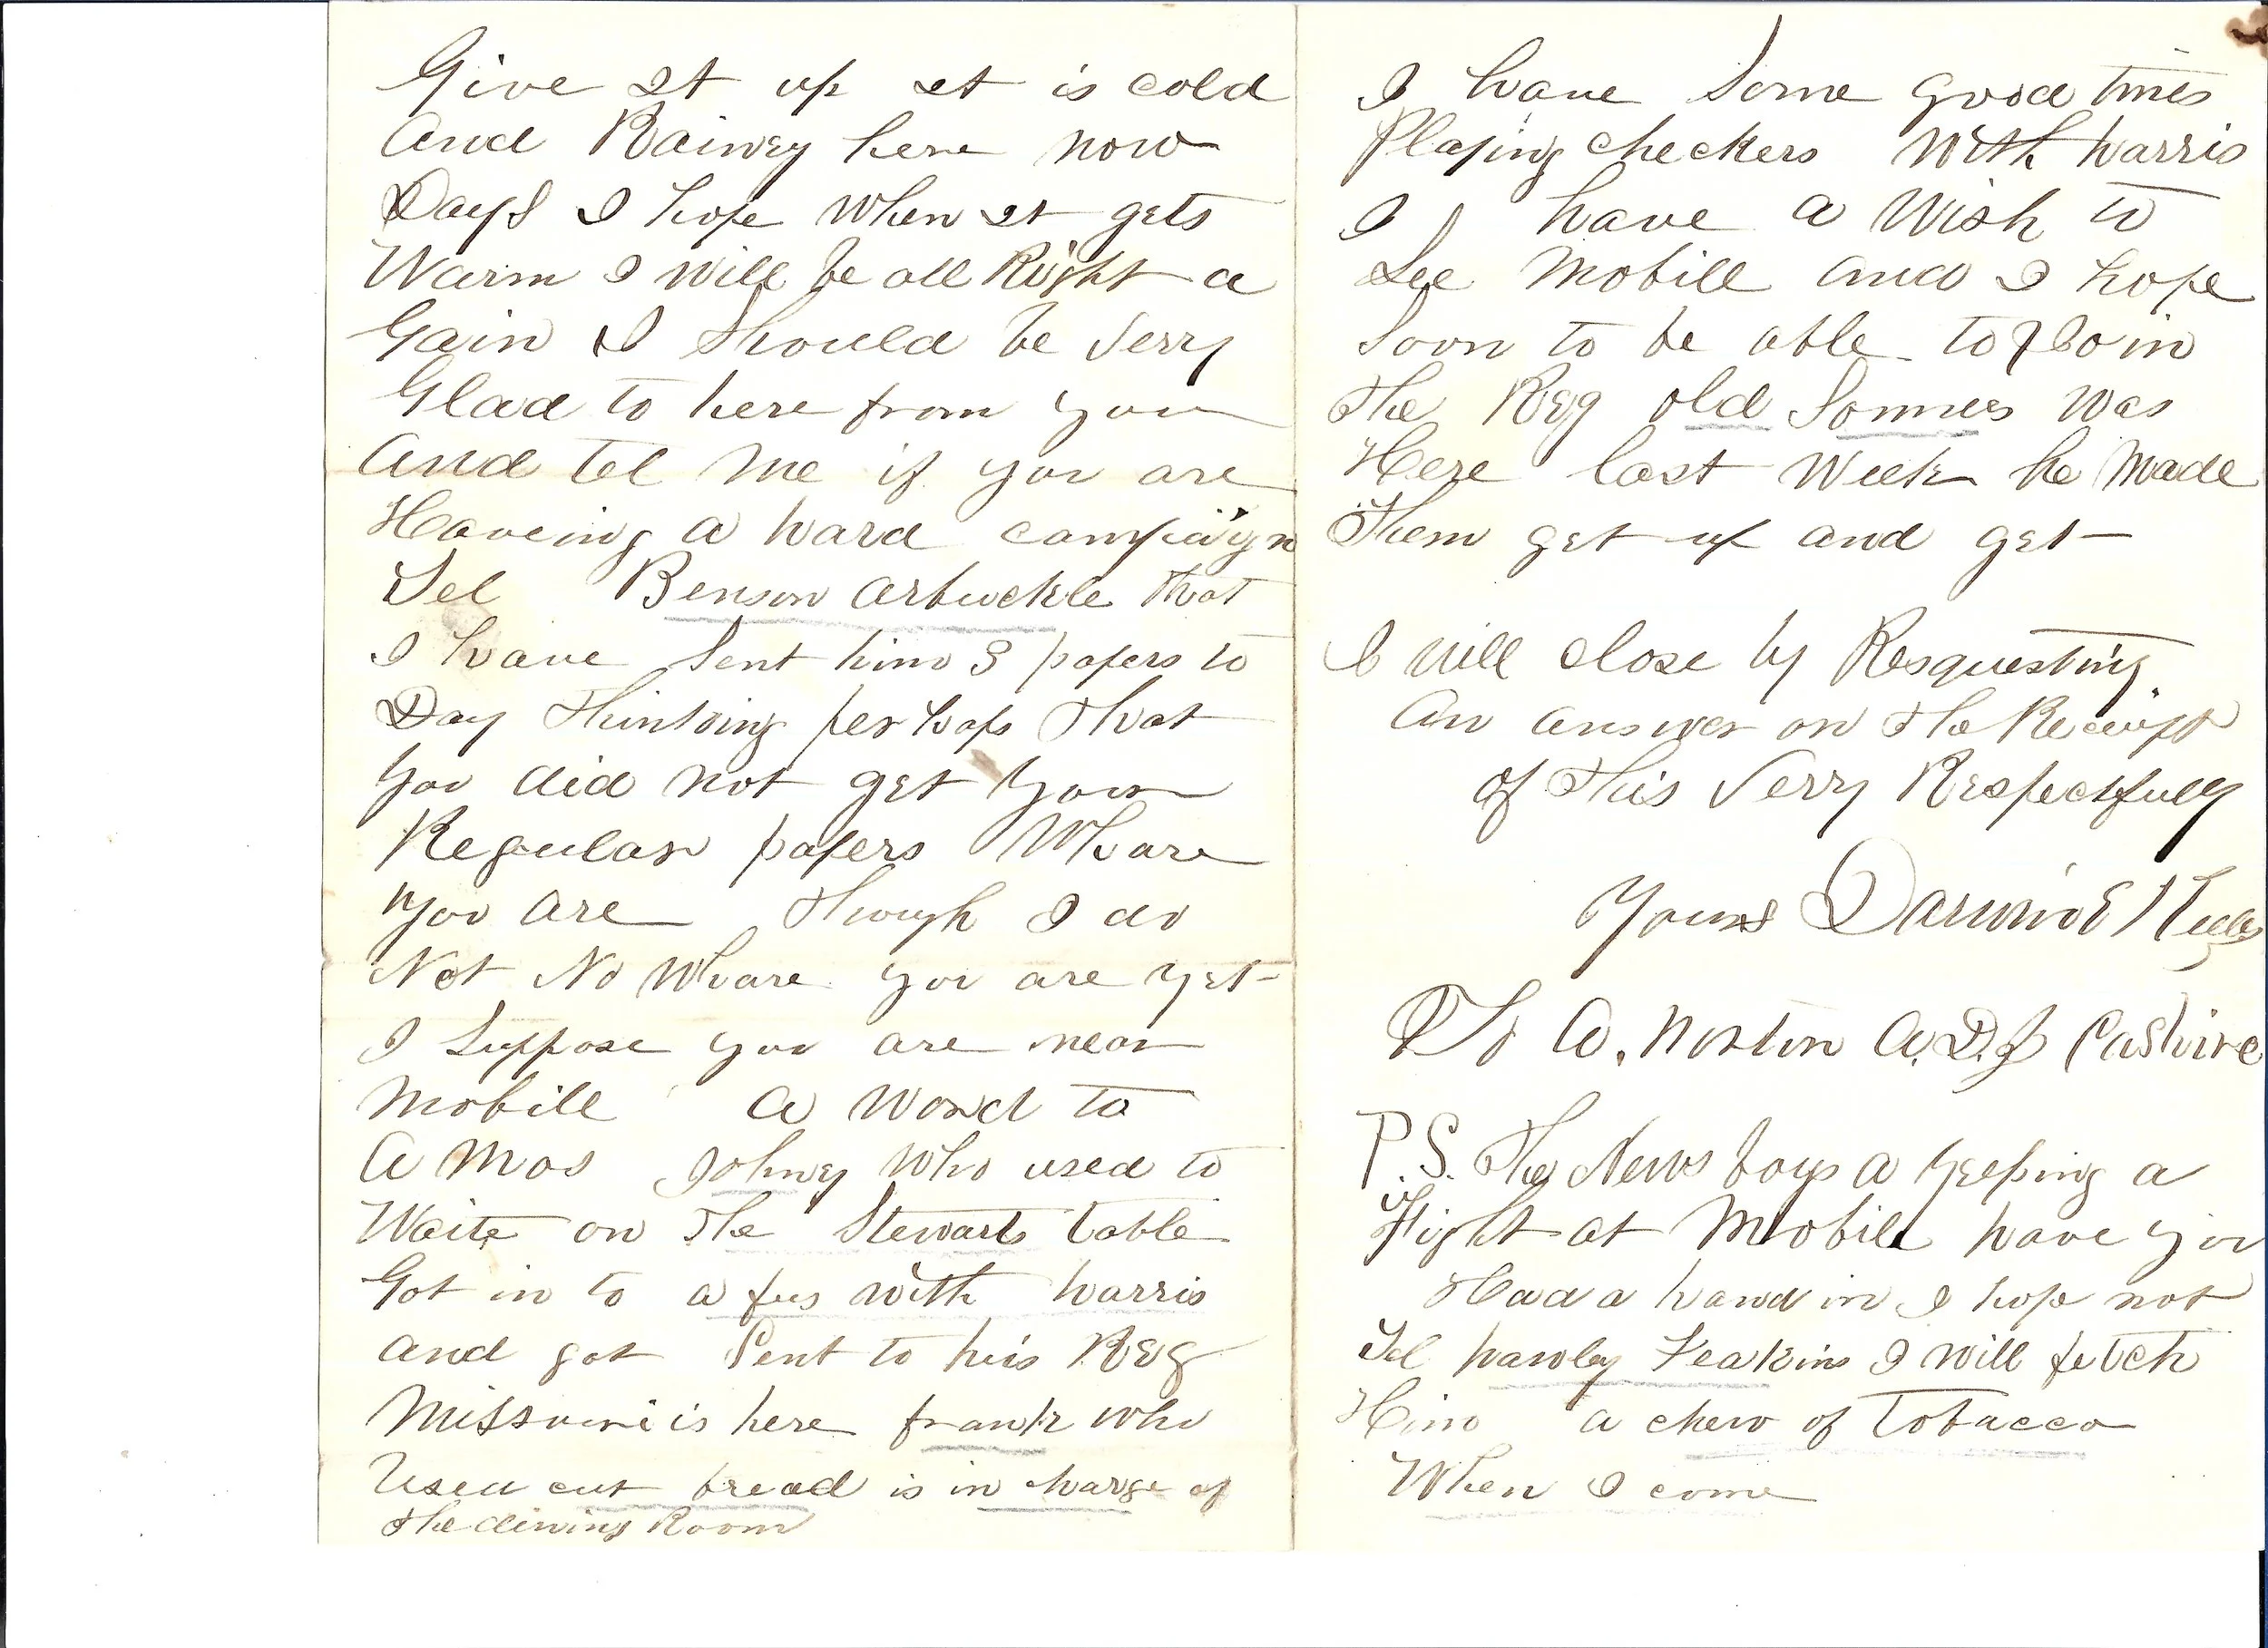 Give It up it is cold
And Rainey here now
Days I hope When It gets
Warm I will be all Right a
Gain I Should be Verry
Glad to here from you
And tel me if you are
Haveing a hard campaign
Tel Benson Arbuckle that
I have Sent him 3 papers to
Day Thinking per haps That
You did not get your
Regular papers Whare
You are Though I do
Not No Whare you are yet
I Suppose you are near
Mobill A word to
A mos Johney Who used to
Waite on The Stewarts table
Got in to a fus with harris
and got Sent to his Reg
Missouri is here frank who
Used cut bread is in charge of
The dining Room
I have Some good times
Playing checkers With harris
I have a Wish to
See Mobill and I hope
Soon to be able to Join
The Reg old Somes was
Here last Week he Made
Them get up and get
I will close by Resquesting
An answer on The Receipt
of This Verry Respectfully
Yours Darwin E
To A. Norton A.D.J
P.S. The News boys a yelping a
Fight at Mobile have you
Had a hand in I hope not
Tel hawley Feakins I will fetch
Him a chew of Tobacco
When I come